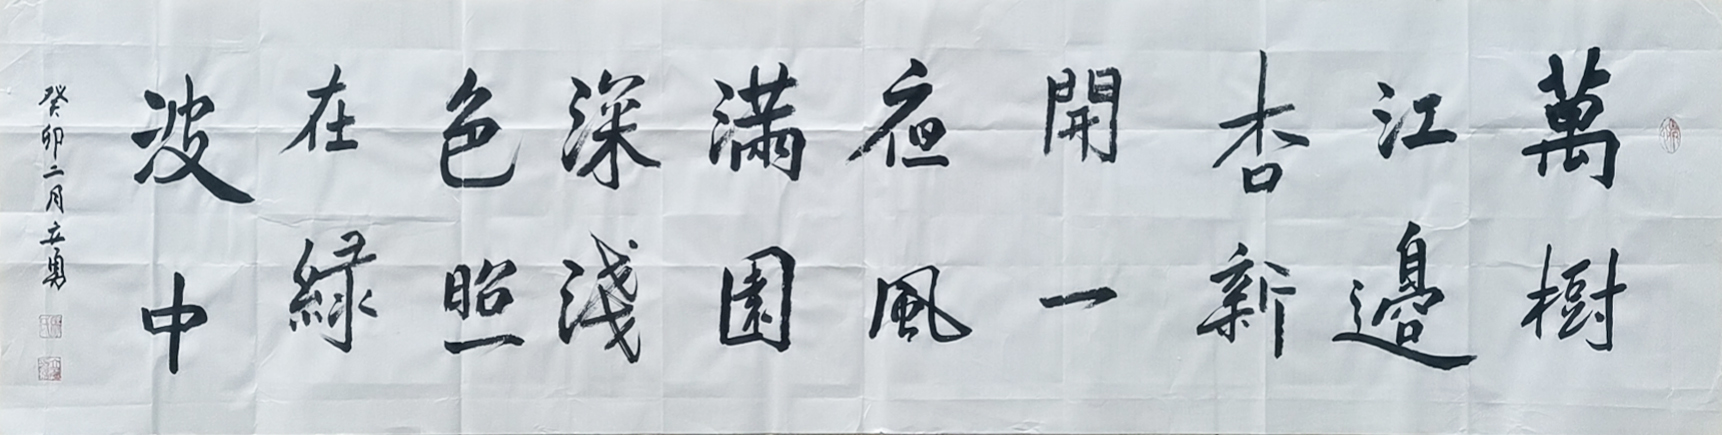 萬樹
江邊
杏新
開一
夜風
滿園
深淺
色照
在綠
波中
癸卯二月立勇